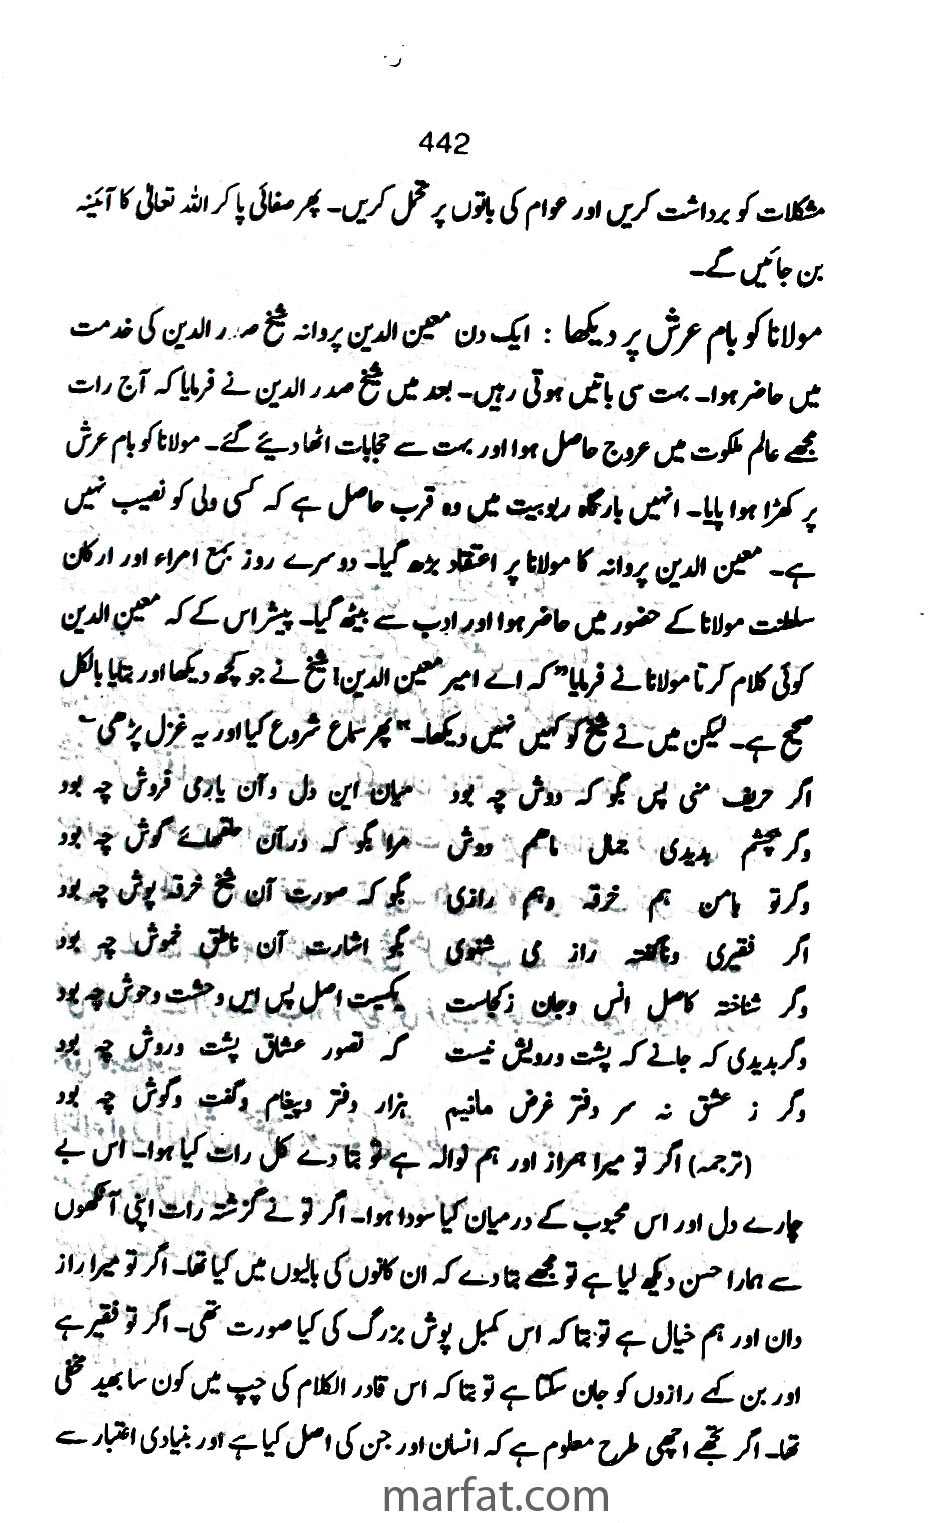 442
مشکلات کو برداشت کریں اور عوام کی باتوں پر تحمل کریں۔ پھر صفائی پا کر اللہ تعالیٰ کا آئینہ
بن جائیں گے۔
مولانا کو بام عرش پر دیکھا : ایک دن معین الدین پروانہ شیخ صدر الدین کی خدمت
میں حاضر ہوا۔ بہت سی باتیں ہوتی رہیں۔ بعد میں شیخ صدر الدین نے فرمایا کہ آج رات
مجھے عالم ملکوت میں عروج حاصل ہوا اور بہت سے حجابات اٹھا دیئے گئے۔ مولانا کو بام عرش
پر کھڑا ہوا پایا۔ انہیں بارگاہ ربوبیت میں وہ قرب حاصل ہے کہ کسی ولی کو نصیب نہیں
ہے۔ معین الدین پروانہ کا مولانا پر اعتقاد بڑھ گیا۔ دوسرے روز بمع امراء اور ارکان
سلطنت مولانا کے حضور میں حاضر ہوا اور ادب سے بیٹھ گیا۔ پیشتر اس کے کہ معین الدین
کوئی کلام کرتا مولانا نے فرمایا "کہ اے امیر معین الدین! شیخ نے جو کچھ دیکھا اور بتایا بالکل
صحیح ہے۔ لیکن میں نے شیخ کو کہیں نہیں دیکھا۔" پھر سماع شروع کیا اور یہ غزل پڑھی ؎
اگر حریف منی پس بگو کہ دوش چہ بود میان این دل و آن یار می فروش چہ بود
وگر چشم بدیدی جمال ماہم دوش مرا بگو کہ در آن حلقہائے گوش چہ بود
وگر تو بامن ہم خرقہ وہم رازی بگو کہ صورت آن شیخ خرقہ پوش چہ بود
اگر فقیری و ناگفتہ راز می شنوی بگو اشارت آن ناطق خموش چہ بود
وگر شناختہ کاصل انس وجان زکجاست یکیست اصل پس ایں وحشت وحوش چہ بود
وگر بدیدی کہ جانے کہ پشت و رویش نیست کہ تصور عشاق پشت وروش چہ بود
وگر ز عشق نہ سر دفتر غرض مائیم ہزار دفتر و پیغام و گفت وگوش چہ بود
(ترجمہ) اگر تو میرا ہمراز اور ہم نوالہ ہے تو بتا دے کل رات کیا ہوا۔ اس بے
چارے دل اور اس محبوب کے درمیان کیا سودا ہوا۔ اگر تو نے گزشتہ رات اپنی آنکھوں
سے ہمارا حسن دیکھ لیا ہے تو مجھے بتا دے کہ ان کانوں کی بالیوں میں کیا تھا۔ اگر تو میرا راز
دان اور ہم خیال ہے تو بتا کہ اس کمبل پوش بزرگ کی کیا صورت تھی۔ اگر تو فقیر ہے
اور بن کہے رازوں کو جان سکتا ہے تو بتا کہ اس قادر الکلام کی چپ میں کون سا بھید مخفی
تھا۔ اگر تجھے اچھی طرح معلوم ہے کہ انسان اور جن کی اصل کیا ہے اور بنیادی اعتبار سے
marfat.com